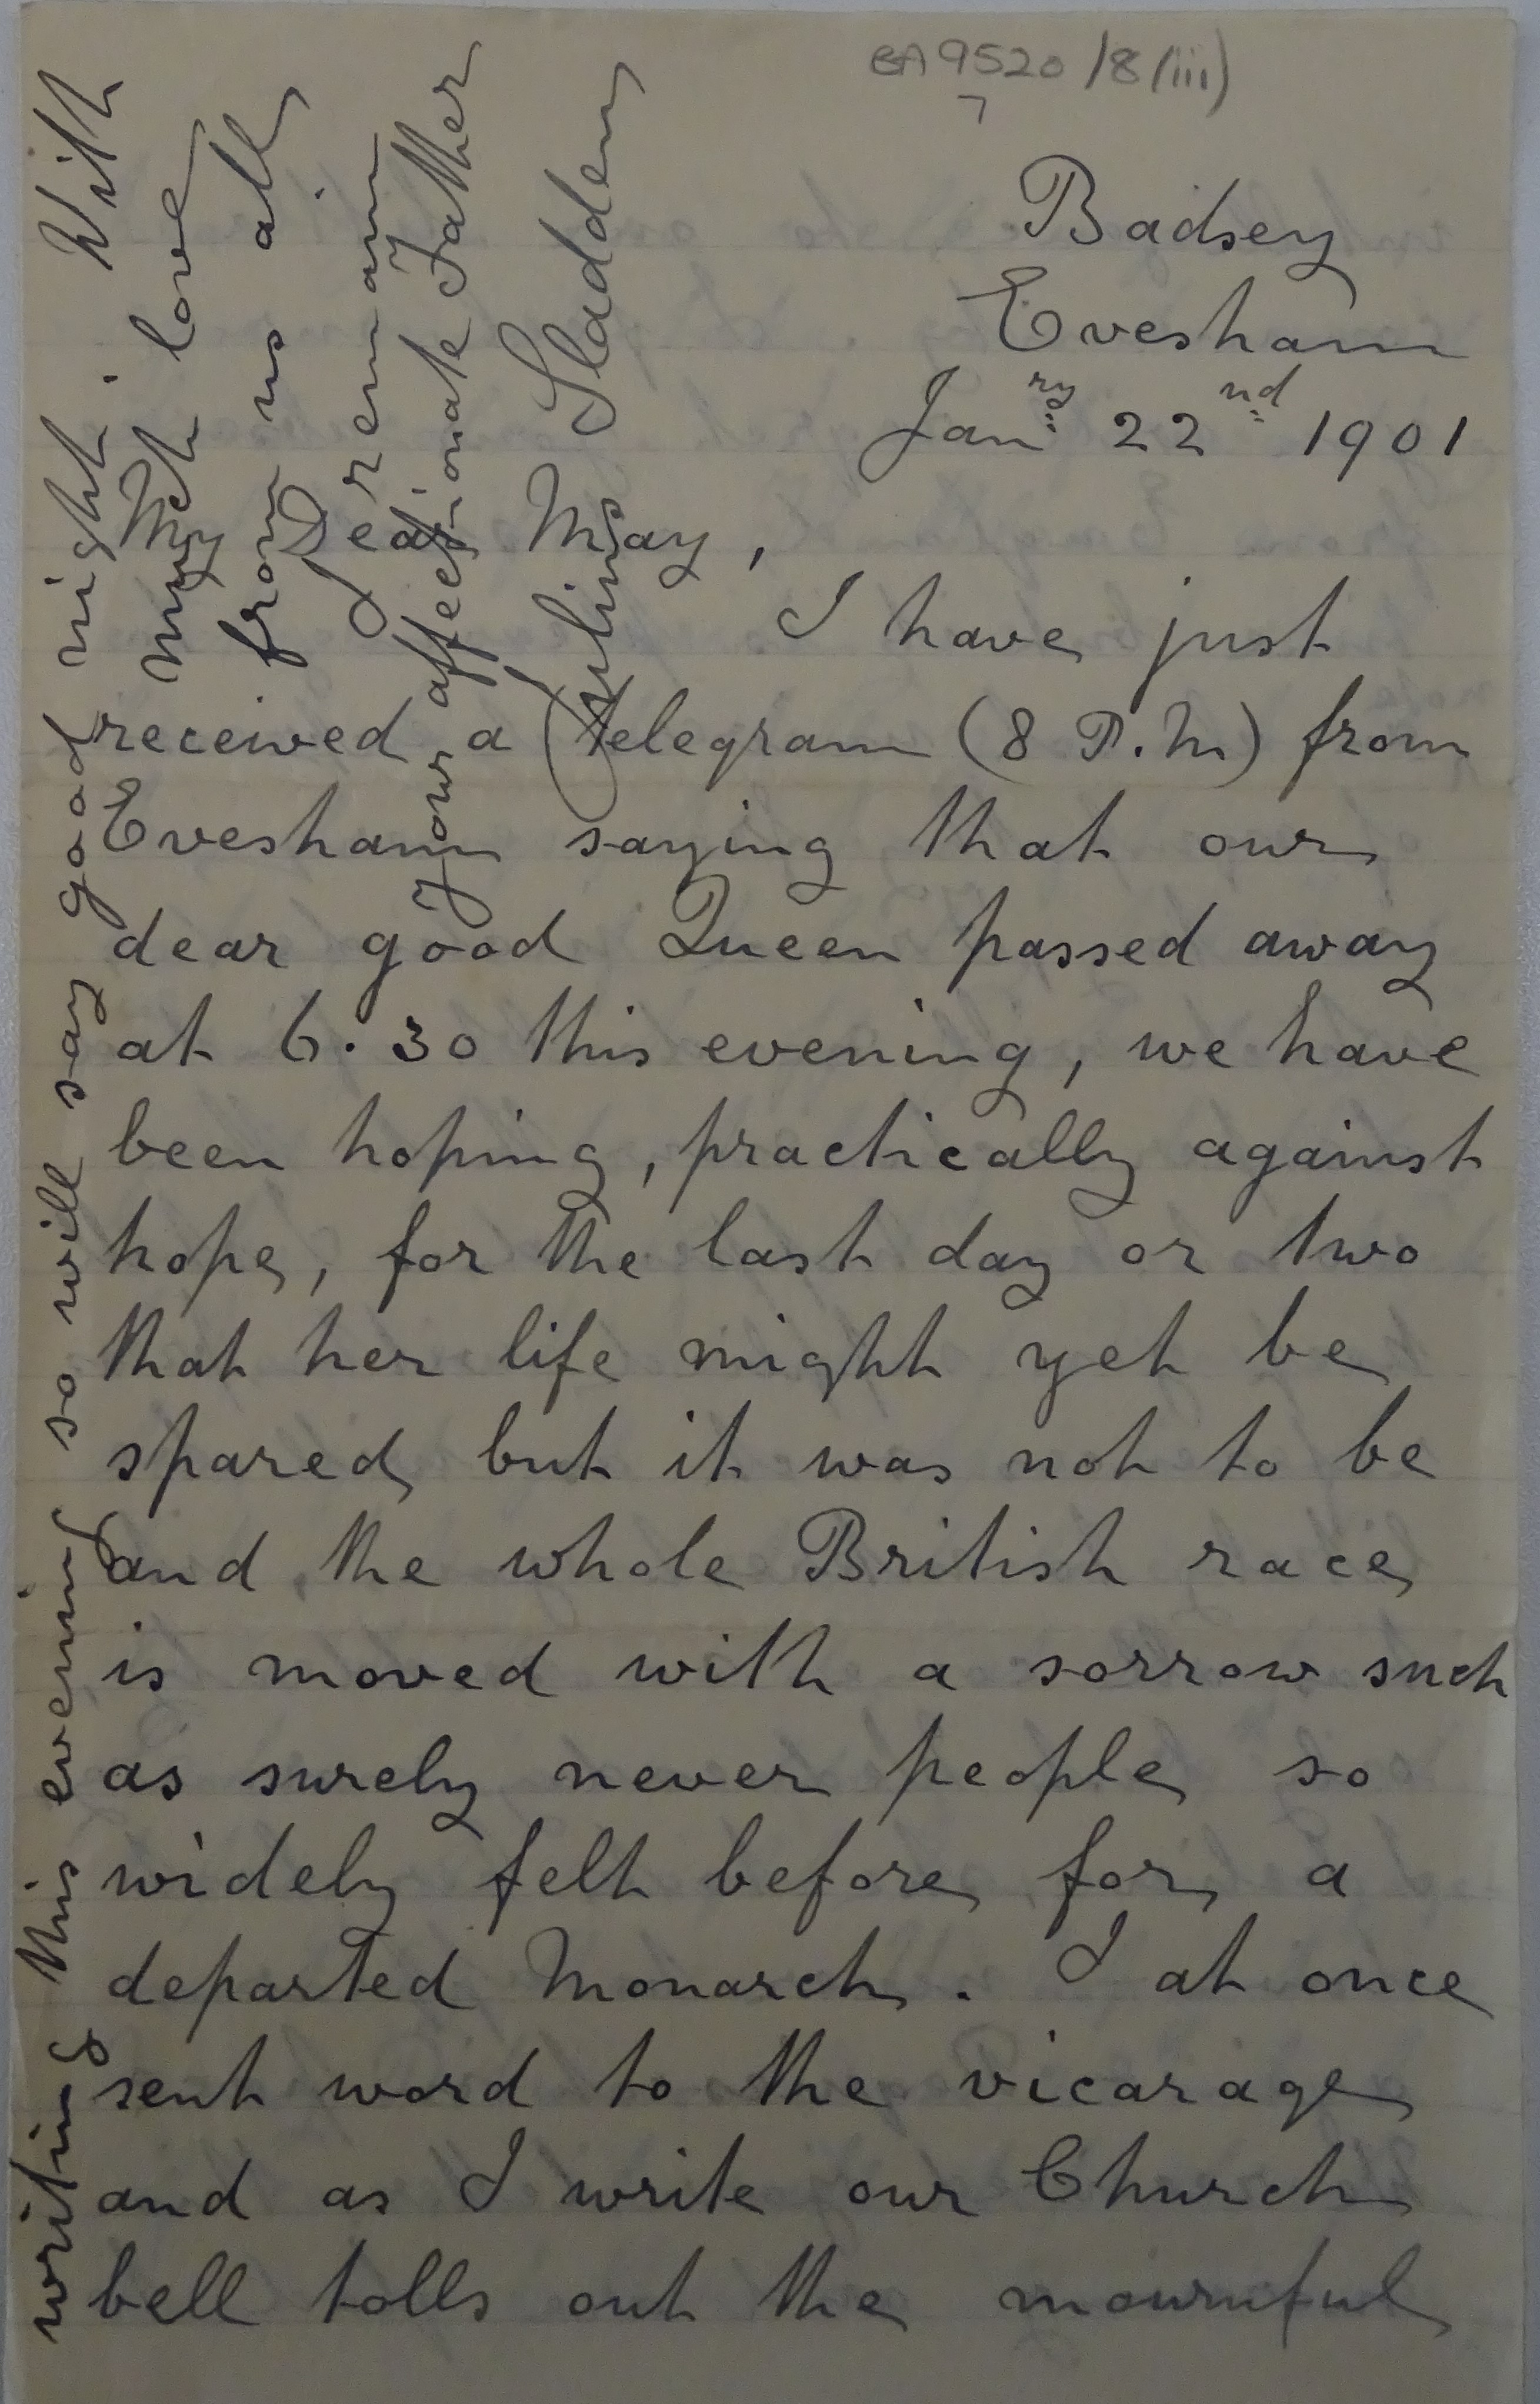 BA 9520/8/(iii)
7
Badsey
Evesham
Janry 22nd 1901
My Dear May,
I have just
received a telegram (8 P.M) from
Evesham saying that our
dear good Queen passed away
at 6.30 this evening, we have
been hoping, practically against
hope, for the last day or two
that her life might yet be
spared, but it was not to be
and the whole British race
is moved with a sorrow such
as surely never people so
widely felt before for a
departed Monarch. I at once
sent word to the vicarage
and as I write our Church
bell tolls out the mournful
writing this evening so will say good night. With
much love
from us all
I remain
your affectionate Father
Julius Sladden